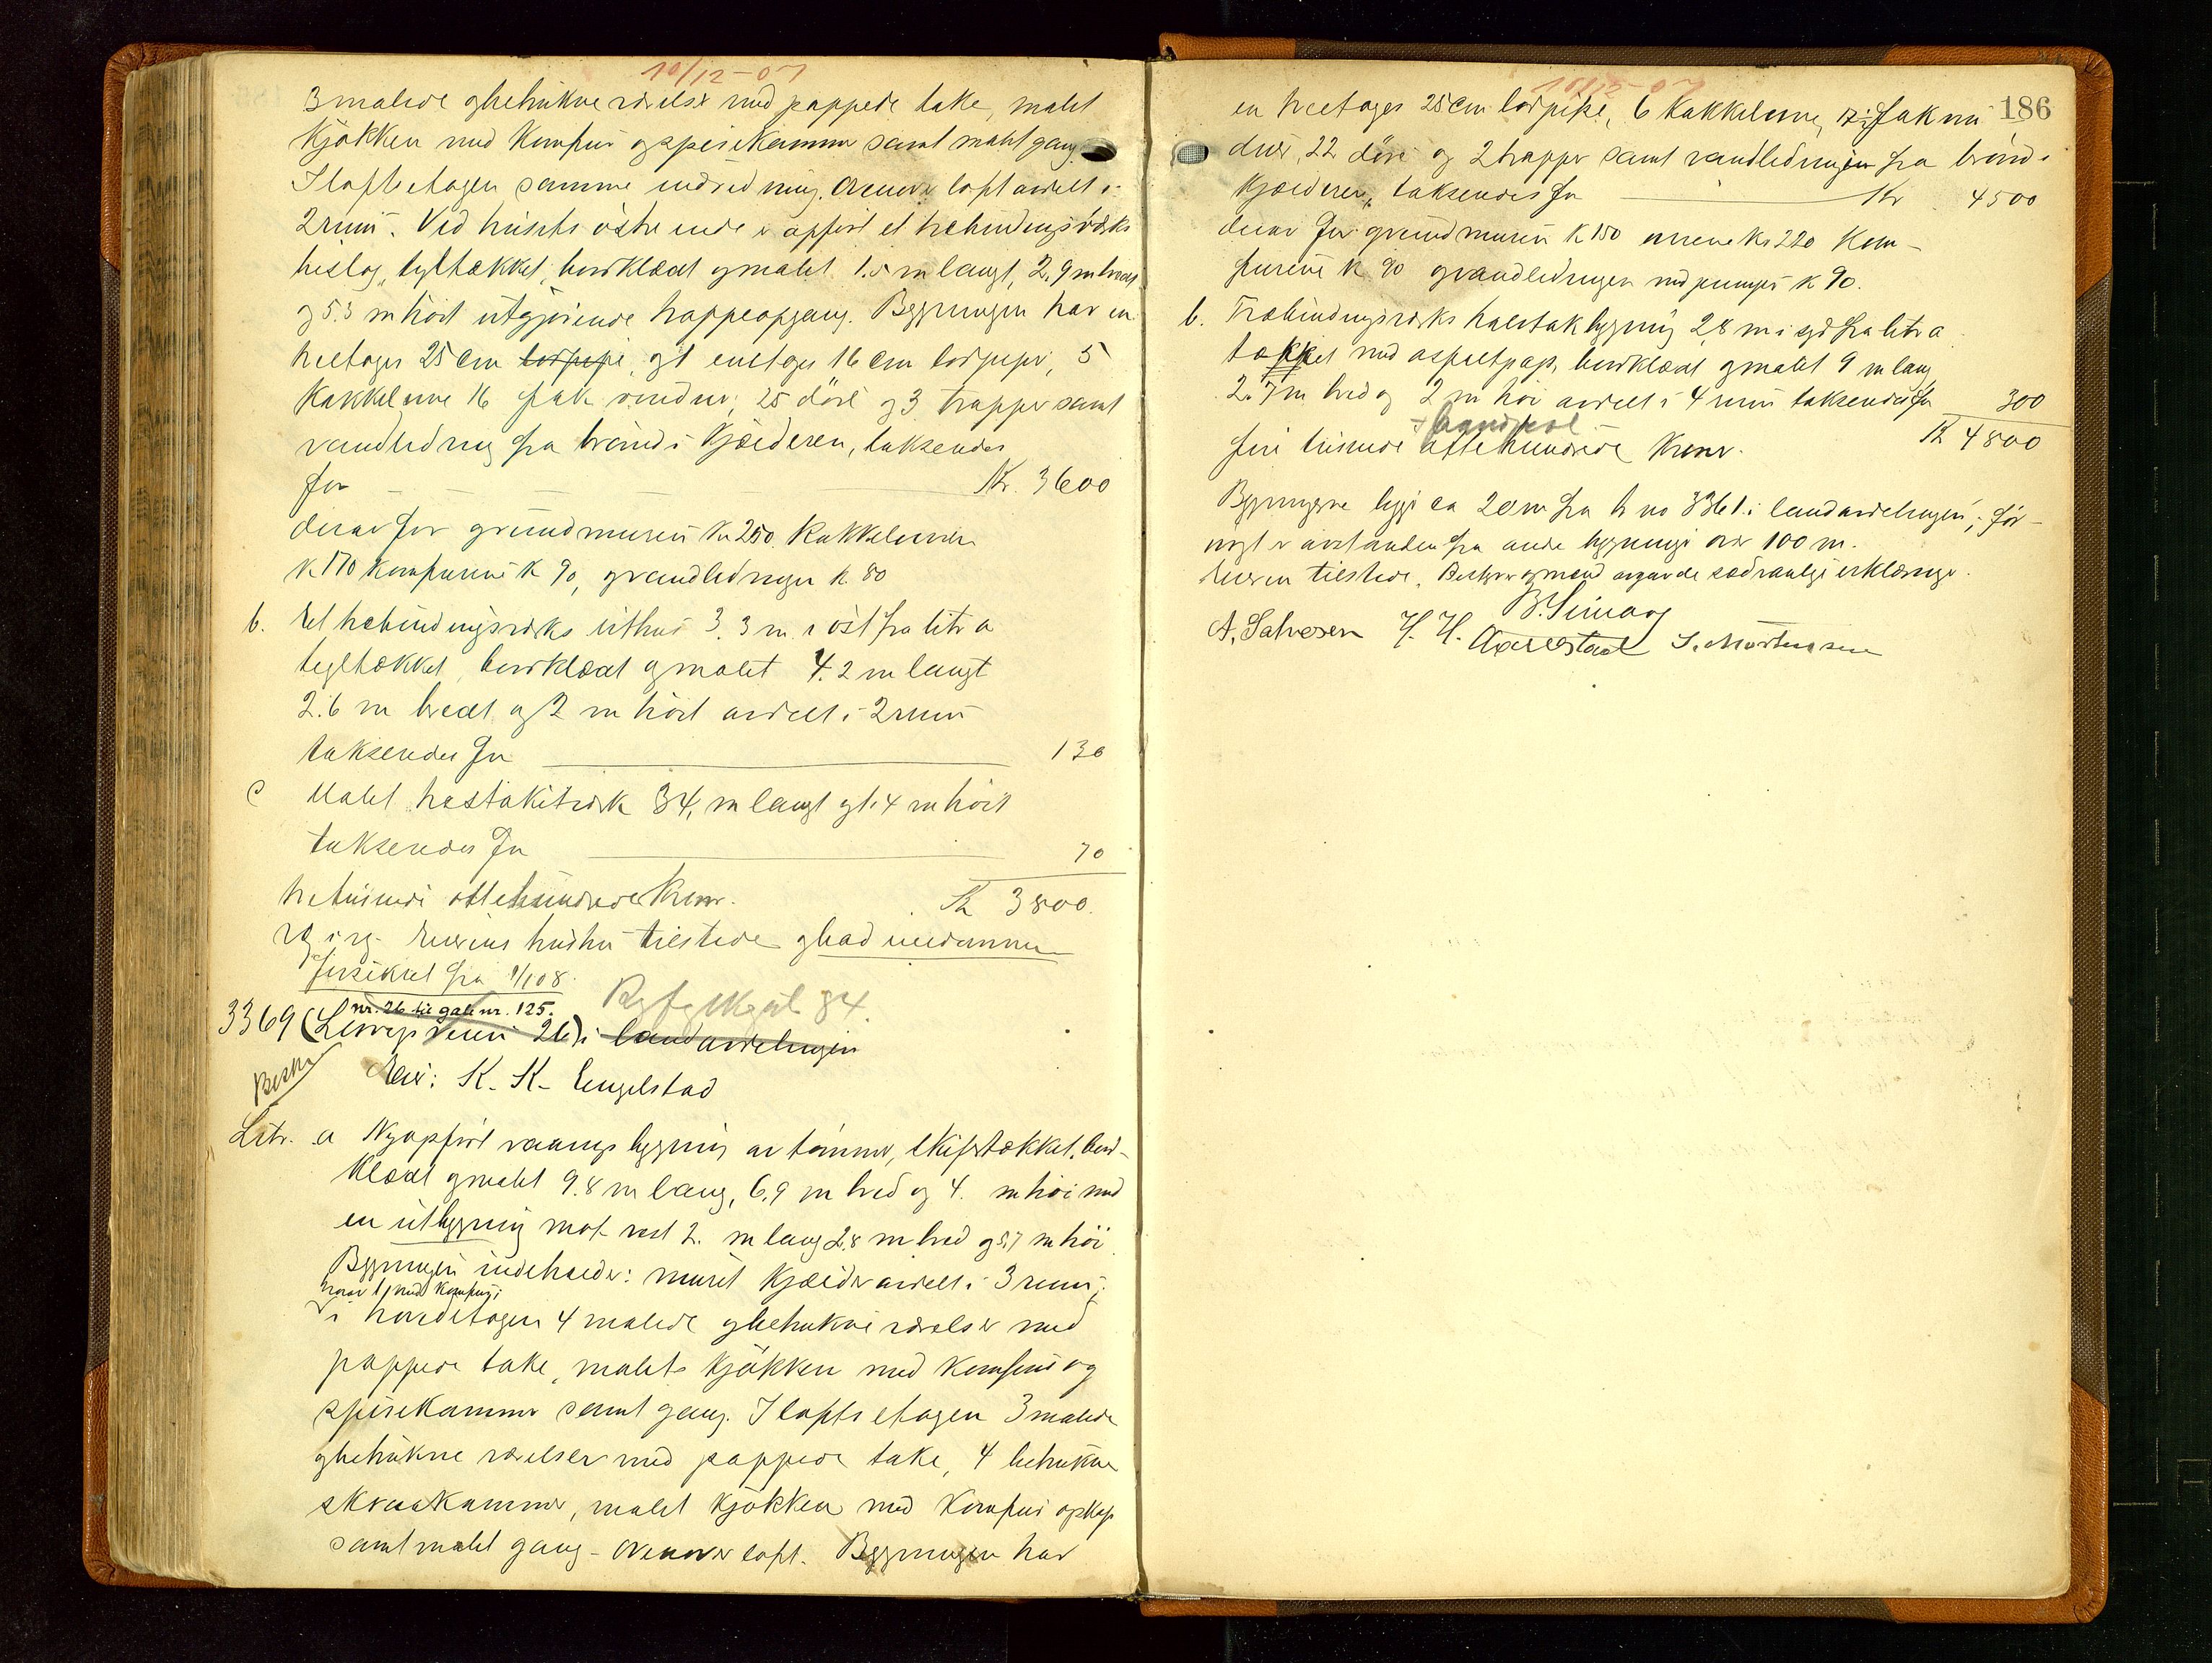 10/12-07
3 malede & betrukne værelser med pappede take, malet
kjøkken med komfur og spisekammer samt malet gang.
I loftsetagen samme indredning. Ovenover loft avdelt i
2 rum. Ved husets østre ende er opført et trebindingsverks
tislag, tegltækket, bordklædt og malet 1.5 m langt, 2.9 m bredt
og 5.3 m høit utgjørende trappeopgang. Bygningen har en
treetages 25 cm lodpipe, og 1 enetages 16 cm lodpipe, 5
kakkelovne 16 fak vinduer, 25 døre og 3 trapper samt
vandledning fra brønd i kjælderen, takseredes
for Kr. 3600
derav for grundmuren kr 250 kakkelovnene
kr 170 komfurene kr 90, & vandledningen kr 80
b. Et trebindingsverks uthus 3.3 m i øst fra litr a
tegltækket, bordklædt & malet 4.2 m langt
2.6 m bredt og 2 m høit avdelt i 2 rum
takseredes for 130
c Malet trestakitverk 34, m langt & 1.4 m høit
takseredes for 70
tretusinde ottehundrede kroner. Kr 3800.
Eierens hustru tilstede & bad eiendommen
forsikret fra 1/1 08.
nr. 26 til gate nr. 125. Ryfylkegat 84.
3369 (Lervigsveien 26) i landavdelingen
Besk.
Eier: K. K. Engelstad
Litr. a Nyopført vaanings bygning av tømmer, skifertækket, bord-
klædt & malet 9.8 m lang, 6.9 m bred og 4. m høi med
en utbygning mot vest 2. m lang 2.8 m bred & 5.7 m høi.
Bygningen indeholder: muret kjælder avdelt i 3 rum,
hvorav 1 med komfur;
i hovedetagen 4 malede & betrukne værelser med
pappede take, malet kjøkken med komfur og
spisekammer samt gang. I loftsetagen 3 malede
& betrukne værelser med pappede take, 4 betrukne
skraakammer, malet kjøkken med komfur og skap
samt malet gang - ovenover loft. Bygningen har
10/12-07
186
en treetages 25 cm lodpipe, 6 kakkelovne, 17 fak vin-
duer, 22 døre og 2 trapper samt vandledningen fra brønd i
kjælderen, takseredes for Kr 4500
derav for grundmuren k 150 ovnene kr 220 kom-
furene k 90 & vandledningen med pumpe k 90.
b. Træbindingsverks halvtakbygning 2,8 m i syd fra litr a
tækket med asfaltpap, bordklædt & malet 9 m lang
2.7 m bred og 2 m høi avdelt i 4 rum takseredes for 300
fire tusinde ottehundrede kroner. Kr 4800
Bygningerne ligger ca 20 m fra h no 3361 i landavdelingen; for-
øvrigt er avstanden fra andre bygninger over 100 m.
Eieren tilstede. Bestyrer & mænd avgav de sedvanlige erklæringer.
B. Simars
A. Salvesen H. H. Aarrestad S. Mortensen